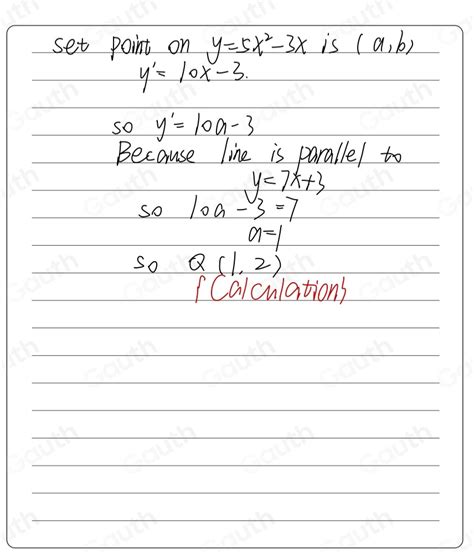 set point on y=5x²-3x is (a,b)
y'=10x-3.
so y'=10a-3
Because line is parallel to
y=7x+3
so 10a-3=7
a=1
so Q(1,2)
{Calculation}